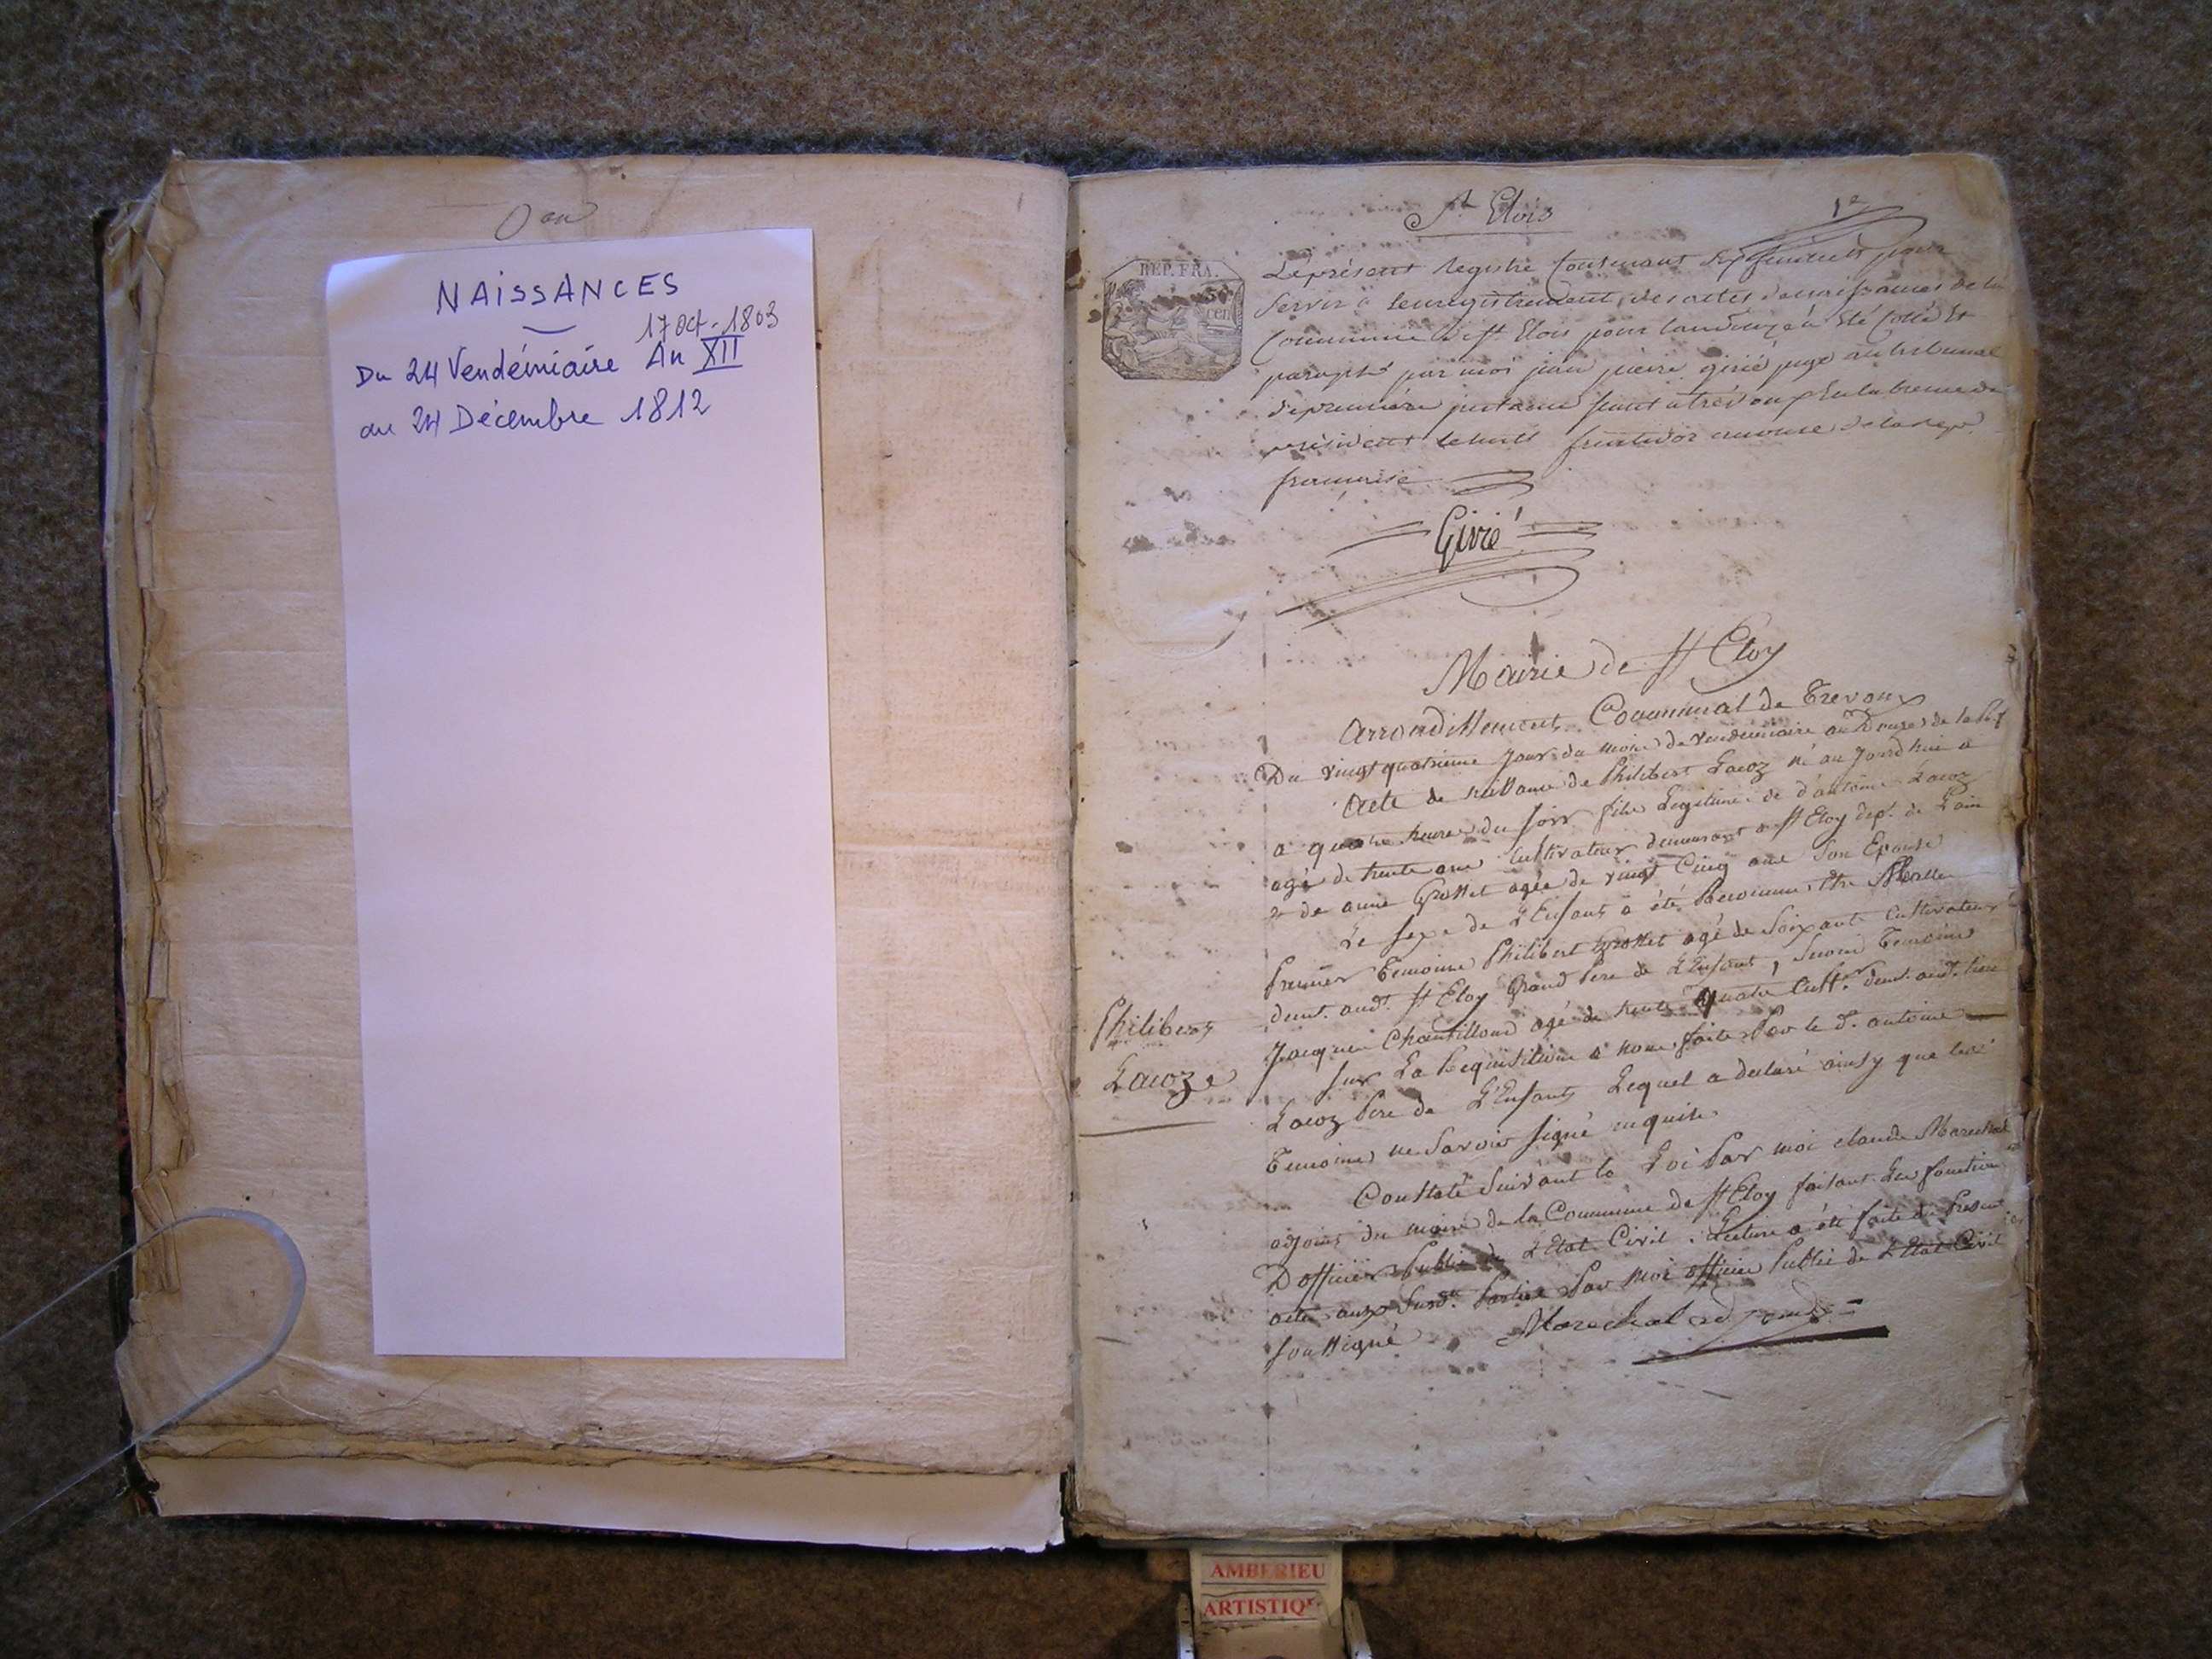 0 an
NAISSANCES
17 Oct. 1803
Du 24 Vendémiaire An XII
au 24 Décembre 1812
St Elois
1er
REP. FRA.
50
cen
Le présent Registre Contenant dix feuillets pour
Servir a lenregistrement des actes de naissances de la
Commune de St Elois pour l'an douze a été Cotté Et
paraphé par moi jean pierre girié juge au tribunal
de premiere instance seant a trevoux En labsence du
président le huit fructidor an onze de la rep.
francaise
Girié
Mairie de St Eloy
Arrondissement Communal de Trevoux
Du vingt quatrieme Jour du mois de Vendemiaire an Douze de la Rep
Acte de naissance de Philibert Lacoz né au Jourdhui a
a quatre heures du soir fils Legitime de d'antoine Lacoz
agé de trente ans Cultivateur demeurant a St Eloy dep.t de Lain
& de anne Grosset agée de vingt Cinq ans Son Epouse
Le sexe de L'Enfant a été Reconnu etre Masle
Premier Temoins Philibert Grosset agé de Soixante Cultivateur
demt. aud. St Eloy Grand Pere de L'Enfant, Second Temoins
Jacques Chantillond agé de trente Quatre Cult.r demt. aud. lieu
Philibert
Sur La Requisition a nous faite Par le S. antoine
Lacoz Pere de L'Enfant Lequel a declaré ainsy que les
Lacoz
Temoins ne Savoir signé enquis.
Constaté Suivant la Loi Par moi claude Marechal
adjoint du maire de la Commune de St Eloy faisant Les fonction
D officier Public de L'Etat Civil. Lecture a été faite du Present
acte aux Susd. Parties Par moi officier Public de L'Etat Civil
Soussigné Marechal adjoint
AMBERIEU
ARTISTIQ